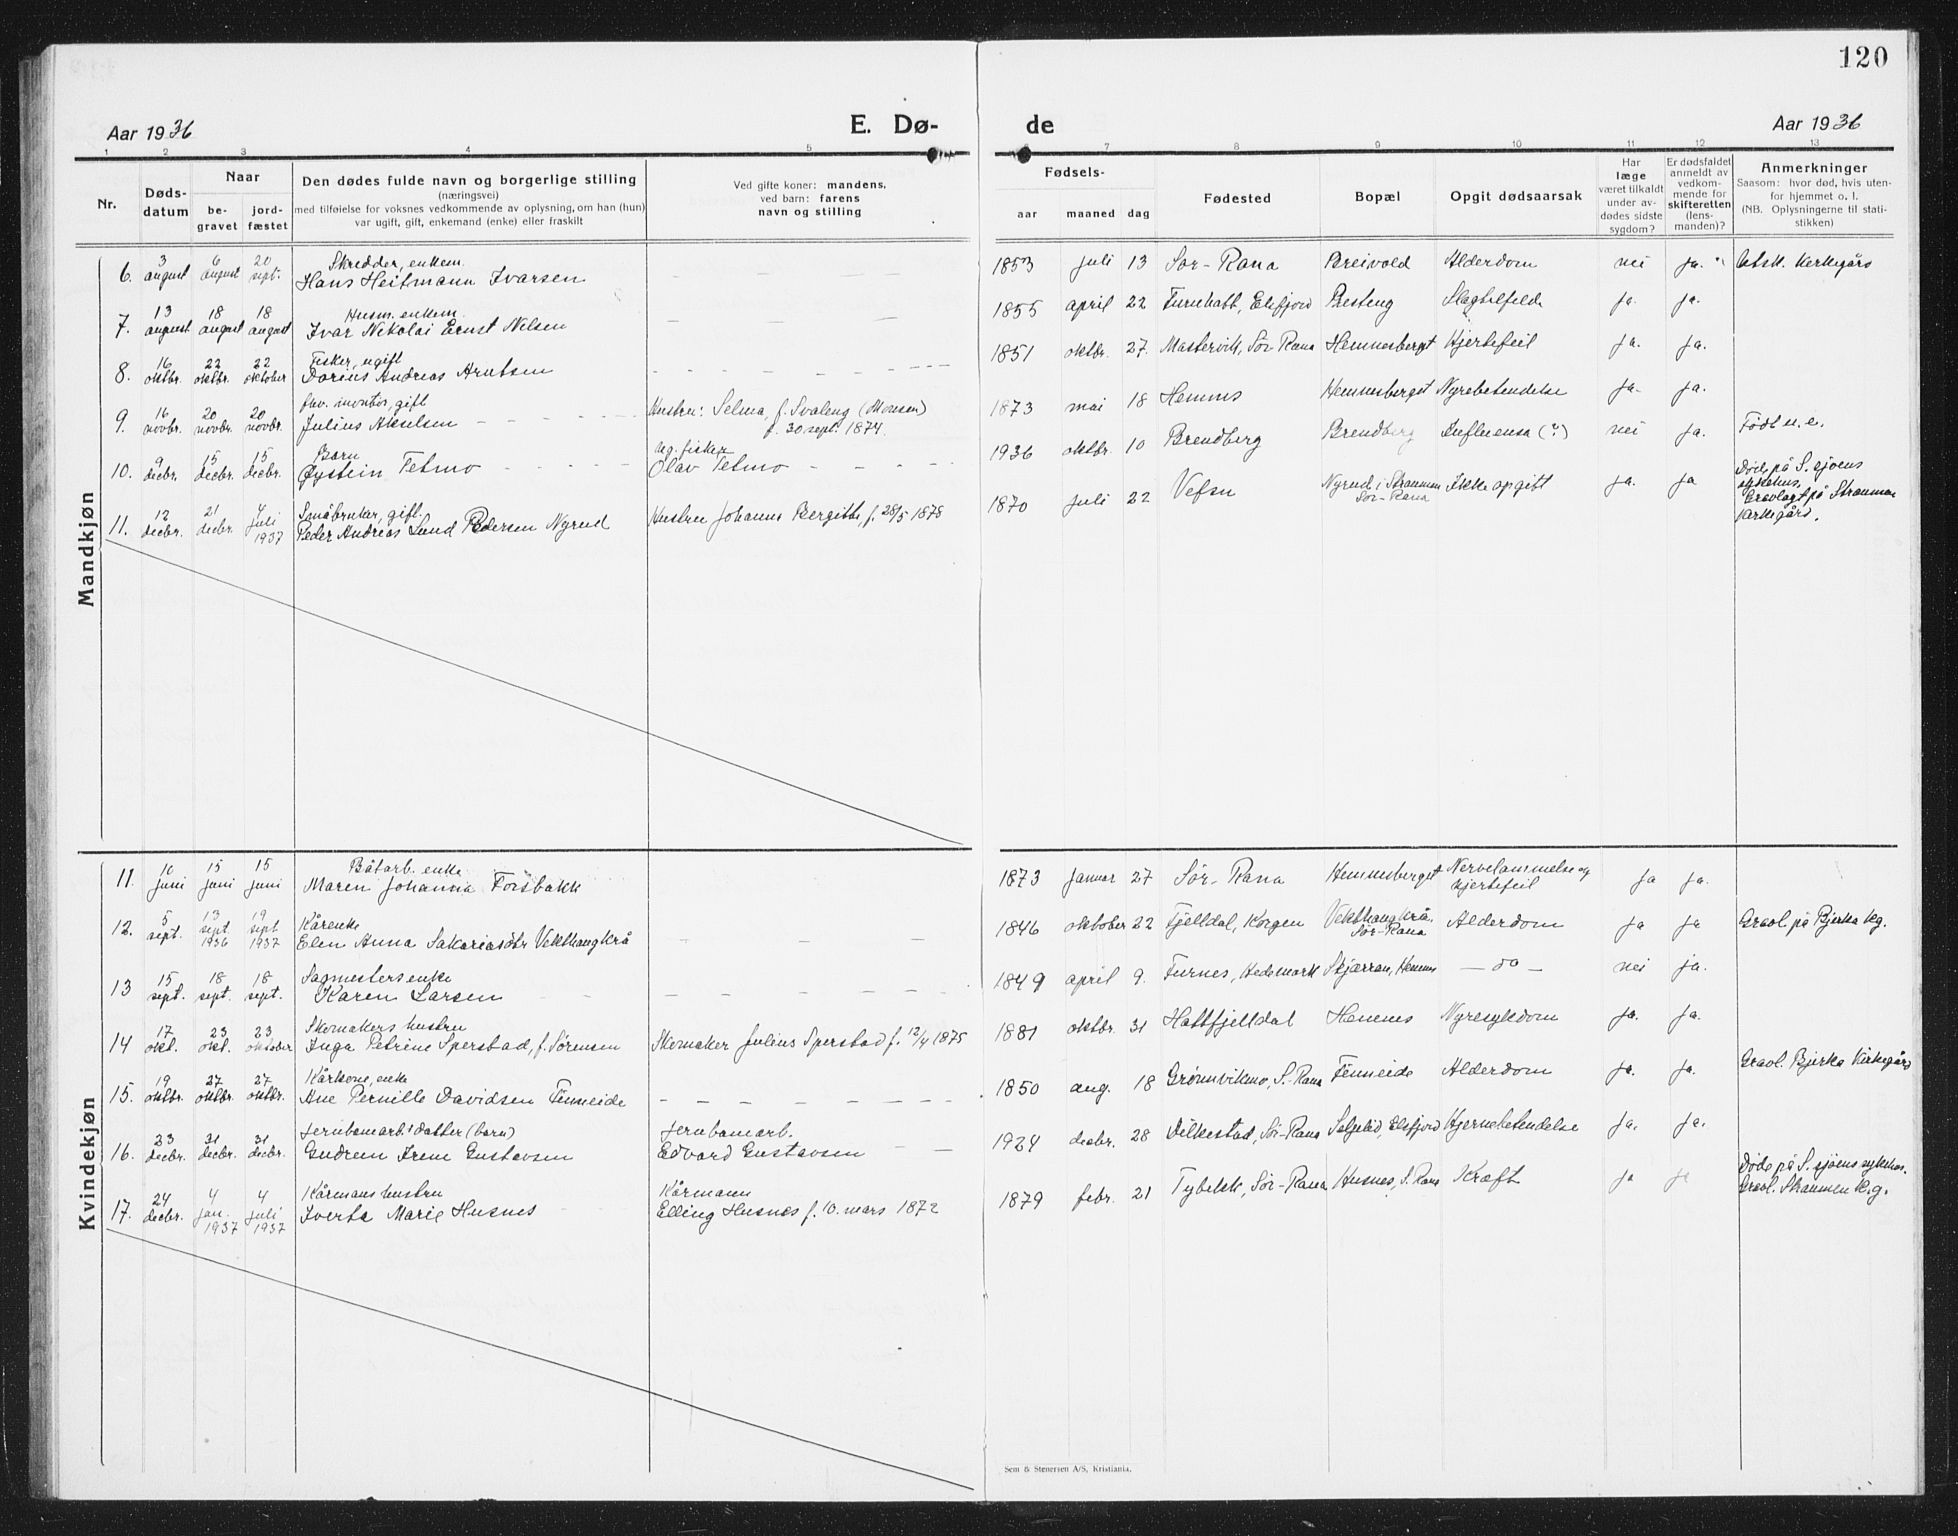 120
Aar 1936
E. Dø-
de
Aar 1936
1 2 3 4 5 6 7 8 9 10 11 12 13
Nr.
Døds-
datum
Naar
be-
gravet
jord-
fæstet
Den dødes fulde navn og borgerlige stilling
(næringsvei)
med tilføielse for voksnes vedkommende av oplysning, om han (hun)
var ugift, gift, enkemand (enke) eller fraskilt
Ved gifte koner: mandens,
ved barn: farens
navn og stilling
Fødsels-
aar maaned dag
Fødested
Bopæl
Opgit dødsaarsak
Har
læge
været tilkaldt
under av-
dødes sidste
sygdom?
Er dødsfaldet
anmeldt av
vedkom-
mende for
skifteretten
(lens-
manden)?
Anmerkninger
Saasom: hvor død, hvis uten-
for hjemmet o. l.
(NB. Oplysningerne til stati-
stikken)
Mandkjøn
6. 3 august 6 august 20 sept.
Skredder, enkem.
Hans Heitmann Ivarsen
1853 juli 13 Sør-Rana Breivold Alderdom nei ja. Utsk. Kirkegård
7. 13 august 18 august 18 august
Husm. enkem.
Ivar Nikolai Ernst Nilsen
1855 april 22 Elsfjord Slagtilfelde ja. ja.
8. 16 oktbr. 22 oktbr. 22 oktober
Fisker, ugift
Darius Andreas Arntsen
1851 oktbr. 27. Mastervik, Sør Rana Hemnesberget Hjertefeil ja. ja.
9. 16 novbr. 20 novbr. 20 novbr.
fhv. montør, gift
Julius Akselsen
Hustru: Selma, f. Svaleng (Monsen)
f. 30 sept. 1874.
1873 mai 18 Hemnes Hemnesberget Nyrebetendelse ja. ja.
10. 9 decbr. 15 decbr. 15 decbr.
Barn
Øystein Tetmo
ug. fisker
Olav Tetmo
1936 oktbr. 10 Brendberg Brendberg Influensa (?) nei ja. Født u. e.
11. 12 decbr. 21 decbr. 7 juli 1937
Småbruker, gift.
Peder Andreas Lund Pedersen Nyrud
Hustru Johanna Bergitte, f. 28/5 1878
1870 juli 22 Vefsn Nyrud i Straumen
Sør-Rana
Ikke opgitt ja. ja
Døde på S. sjøens
sykehus.
Gravlagt på Straumen
kirkegård.
Kvindekjøn
11. 10 juni 15 juni 15 juni
Båtarb. enke
Maren Johanna Forsbakk
1873 januar 27 Sør-Rana Hemnesberget Nervelammelse og
hjertefeil
ja ja.
12. 5 sept. 13 sept. 1936 19 sept 1937
Kårenke
Elen Anna Sakariasdtr Vekthaugkrå
1846 oktober 22 Fjelldal, Korgen Vekthaugkrå.
Sør-Rana
Alderdom ja ja Gravl. på Bjerka kg.
13 15 sept. 18 sept. 18 sept.
Sagmesters enke
Karen Larsen
1849 april 9. Furnes, Hedemark Skjærran, Hemnes — do — nei ja.
14 17 okt. 23 okt. 23 oktober
Skomakers hustru
Inga Petrine Sperstad, f. Sørensen
Skomaker Julius Sperstad f. 12/4 1875
1881 oktbr. 31 Hattfjelldal Hemnes Nyresykdom ja. ja.
15. 19 oktbr. 27 oktbr. 27 oktbr.
Kårkone, enke
Ane Pernille Davidsen Finneide
1850 aug. 18 Grønnvikmo, S.-Rana Finneide Alderdom ja. ja. Gravl. Bjerka Kirkegård
16. 23 decbr. 31 decbr. 31 decbr.
Jernbanearb. datter (barn)
Gudrun Irene Gustavsen
Jernbanearb.
Edvard Gustavsen
1924 decbr. 28 Dilkestad, Sør-Rana Elsfjord Hjernebetendelse ja. ja.
17. 24 decbr. 4 jan. 1937 4 juli 1937
Kårmans hustru
Iverta Marie Husnes
Kårmann
Elling Husnes f. 10. mars 1872
1879 febr. 21 Sør-Rana Husnes, S. Rana Kræft ja ja
Døde på S. sjøens sykehus.
Gravl. Straumen k.g.
Sem & Stenersen A/S, Kristiania.